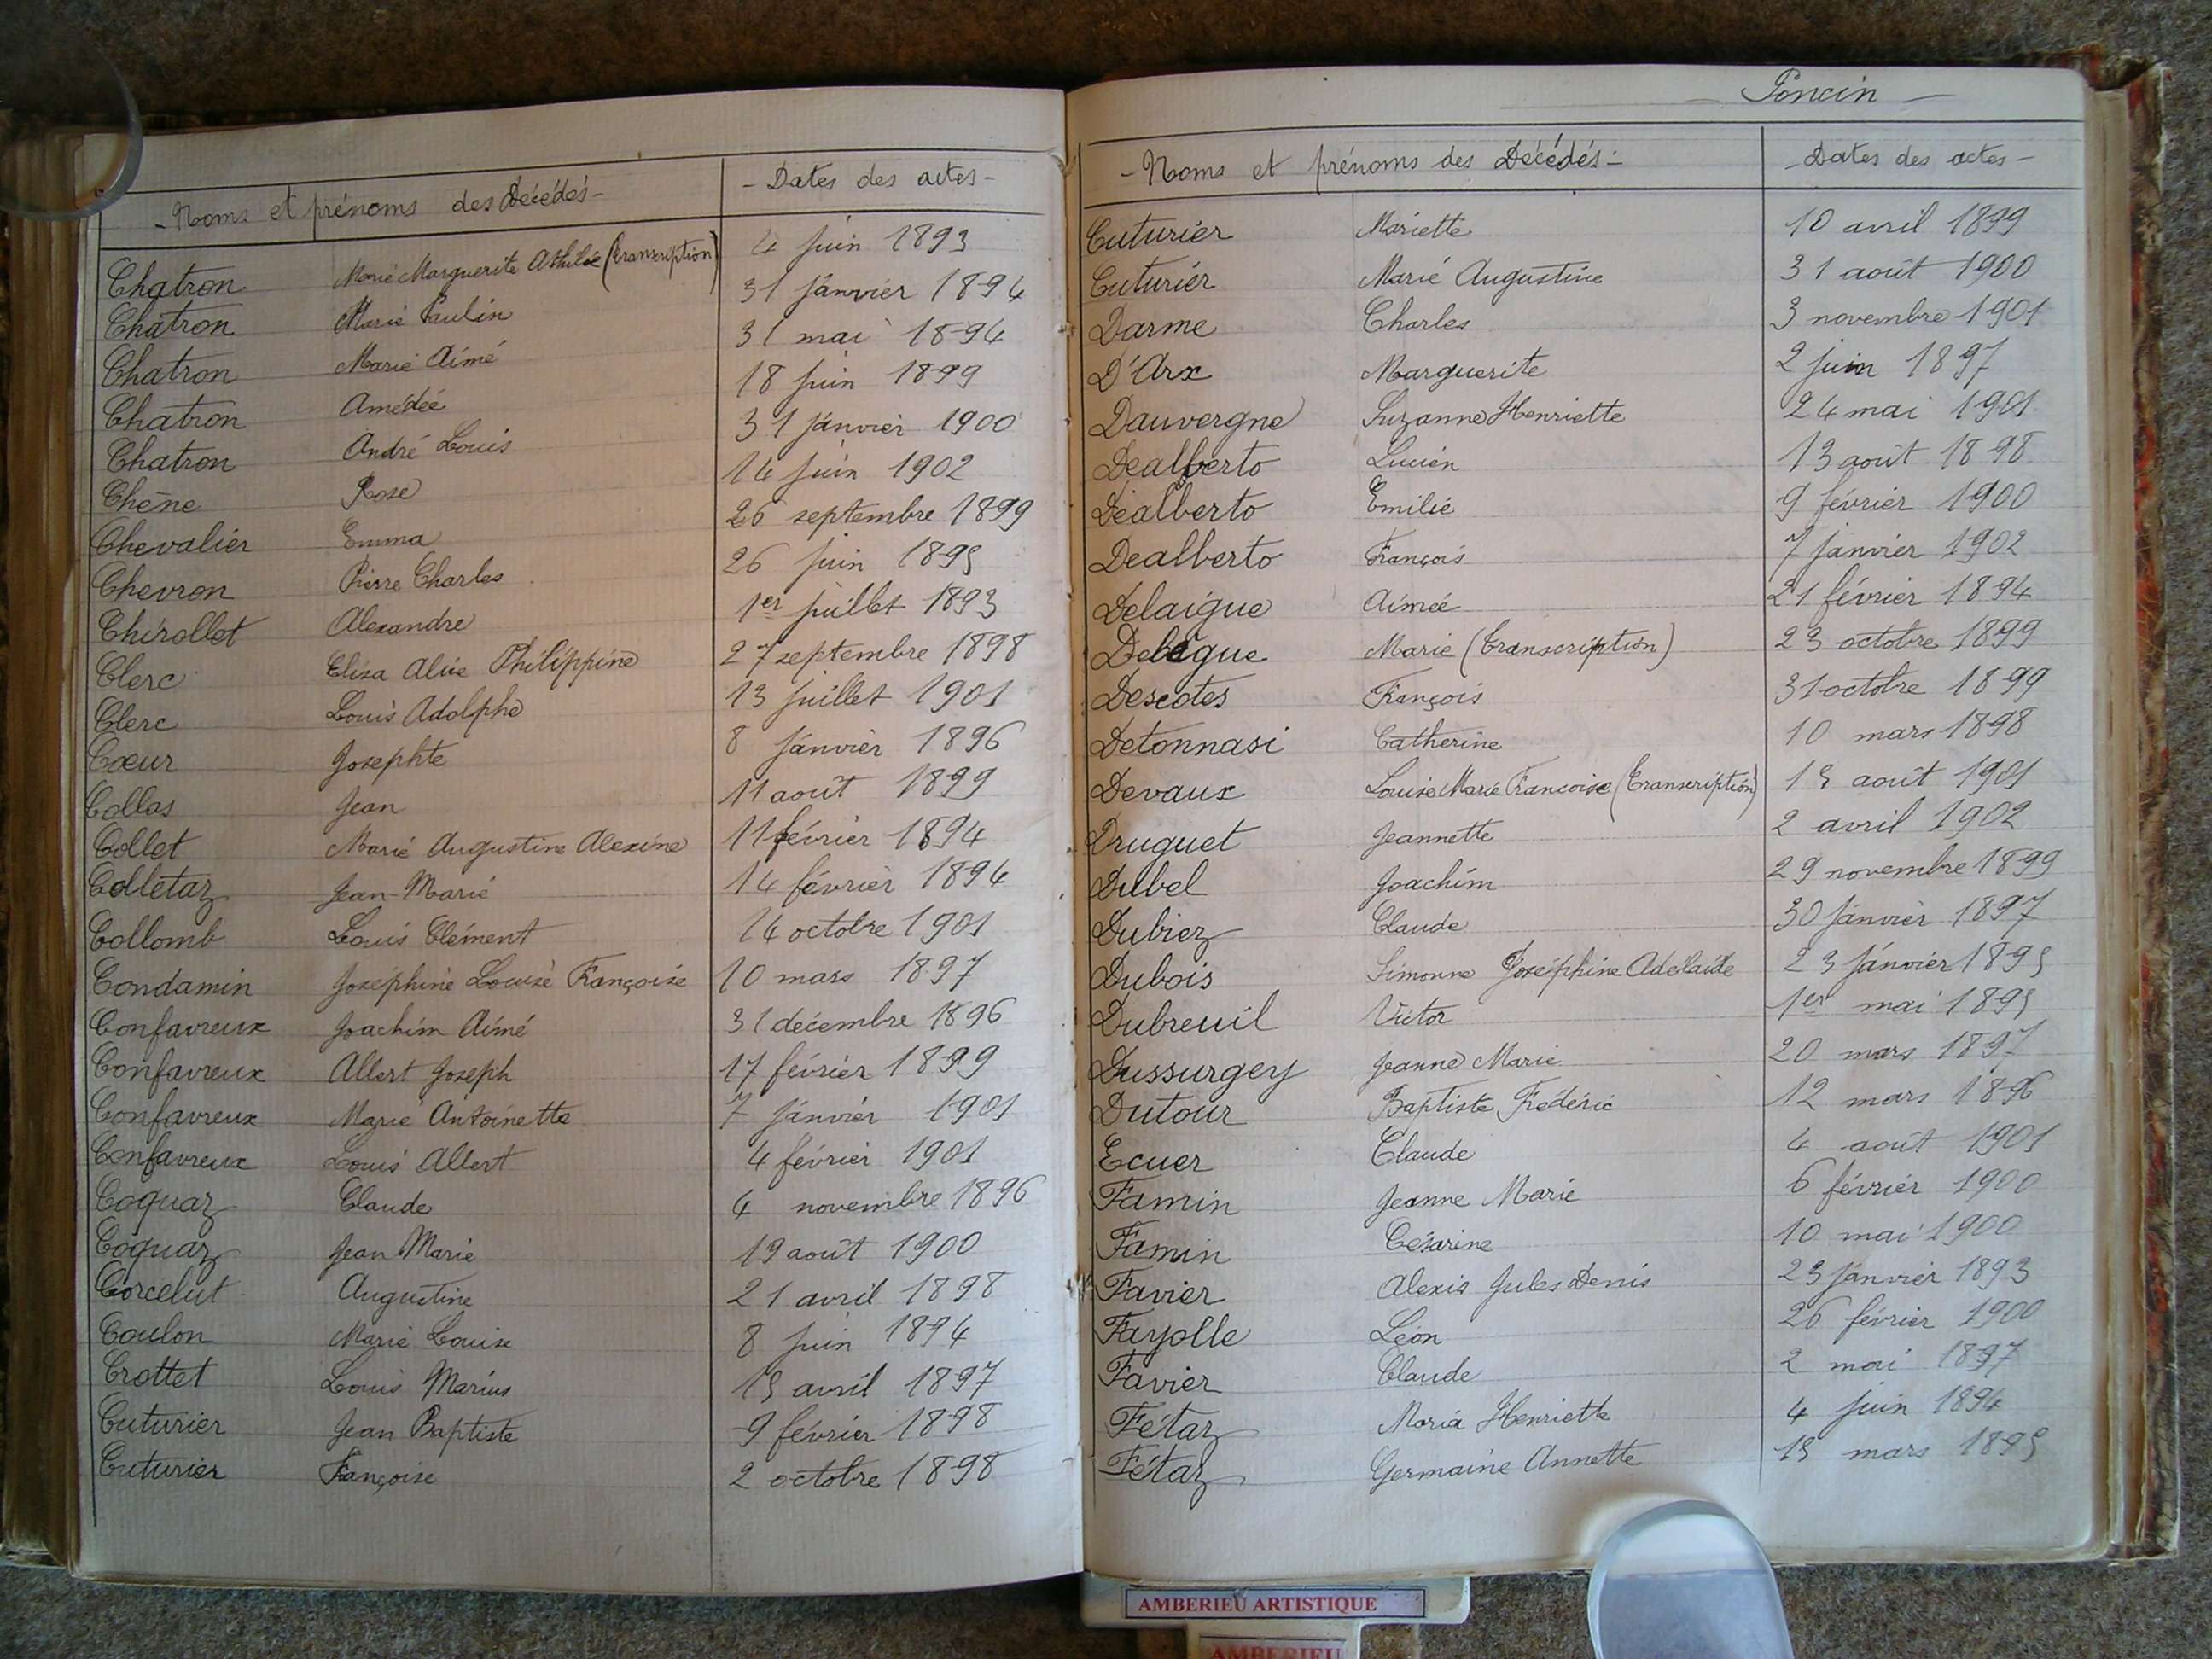 - Noms et prénoms des Décédés - - Dates des actes -
Chatron Marie Marguerite (transcription) 4 juin 1893
Chatron Marie Paulin 31 janvier 1894
Chatron Marie Aimé 31 mai 1894
Chatron Amédée 18 juin 1899
Chatron André Louis 31 janvier 1900
Chêne Rose 14 juin 1902
Chevalier Emma 26 septembre 1899
Chevron Pierre Charles 26 juin 1895
Chirollet Alexandre 1er juillet 1893
Clerc Elisa Alice Philippine 27 septembre 1898
Clerc Louis Adolphe 13 juillet 1901
Cœur Josephte 8 janvier 1896
Collas Jean 11 août 1899
Collet Marie Augustine Alexine 11 février 1894
Colletaz Jean-Marie 14 février 1894
Collomb Louis Clément 14 octobre 1901
Condamin Joséphine Louise Françoise 10 mars 1897
Confavreux Joachim Aimé 31 décembre 1896
Confavreux Albert Joseph 17 février 1899
Confavreux Marie Antoinette 7 janvier 1901
Confavreux Louis Albert 4 février 1901
Coquaz Claude 4 novembre 1896
Coquaz Jean Marie 19 août 1900
Corcelut Augustine 21 avril 1898
Coulon Marie Louise 8 juin 1894
Crottet Louis Marius 15 avril 1897
Cuturier Jean Baptiste 9 février 1898
Cuturier Françoise 2 octobre 1898
Poncin
- Noms et prénoms des Décédés - - Dates des actes -
Cuturier Mariette 10 avril 1899
Cuturier Marie Augustine 31 août 1900
Darme Charles 3 novembre 1901
D'Arx Marguerite 2 juin 1897
Dauvergne Suzanne Henriette 24 mai 1901
Dealberto Lucien 13 août 1898
Déalberto Emilie 9 février 1900
Dealberto François 7 janvier 1902
Délaigue Aimée 21 février 1894
Delègue Marie (Transcription) 23 octobre 1899
Descotes François 31 octobre 1899
Detonnasi Catherine 10 mars 1898
Devaux Louise Marie Francoise (Transcription) 15 août 1901
Druguet Jeannette 2 avril 1902
Dubel Joachim 29 novembre 1899
Dubiez Claude 30 janvier 1897
Dubois Simonne Joséphine Adélaïde 23 janvier 1895
Dubreuil Victor 1er mai 1895
Dussurgey Jeanne Marie 20 mars 1897
Dutour Baptiste Frédéric 12 mars 1896
Ecuer Claude 4 août 1901
Famin Jeanne Marie 6 février 1900
Famin Césarine 10 mai 1900
Favier Alexis Jules Denis 23 janvier 1893
Fayolle Léon 26 février 1900
Favier Claude 2 mai 1897
Fétaz Maria Henriette 4 juin 1894
Fétaz Germaine Annette 15 mars 1895
AMBERIEU ARTISTIQUE
AMBERIEU